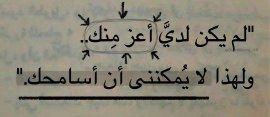 "لم يكن لديَّ أعز مِنك..
ولهذا لا يُمكننى أن أسامحك."